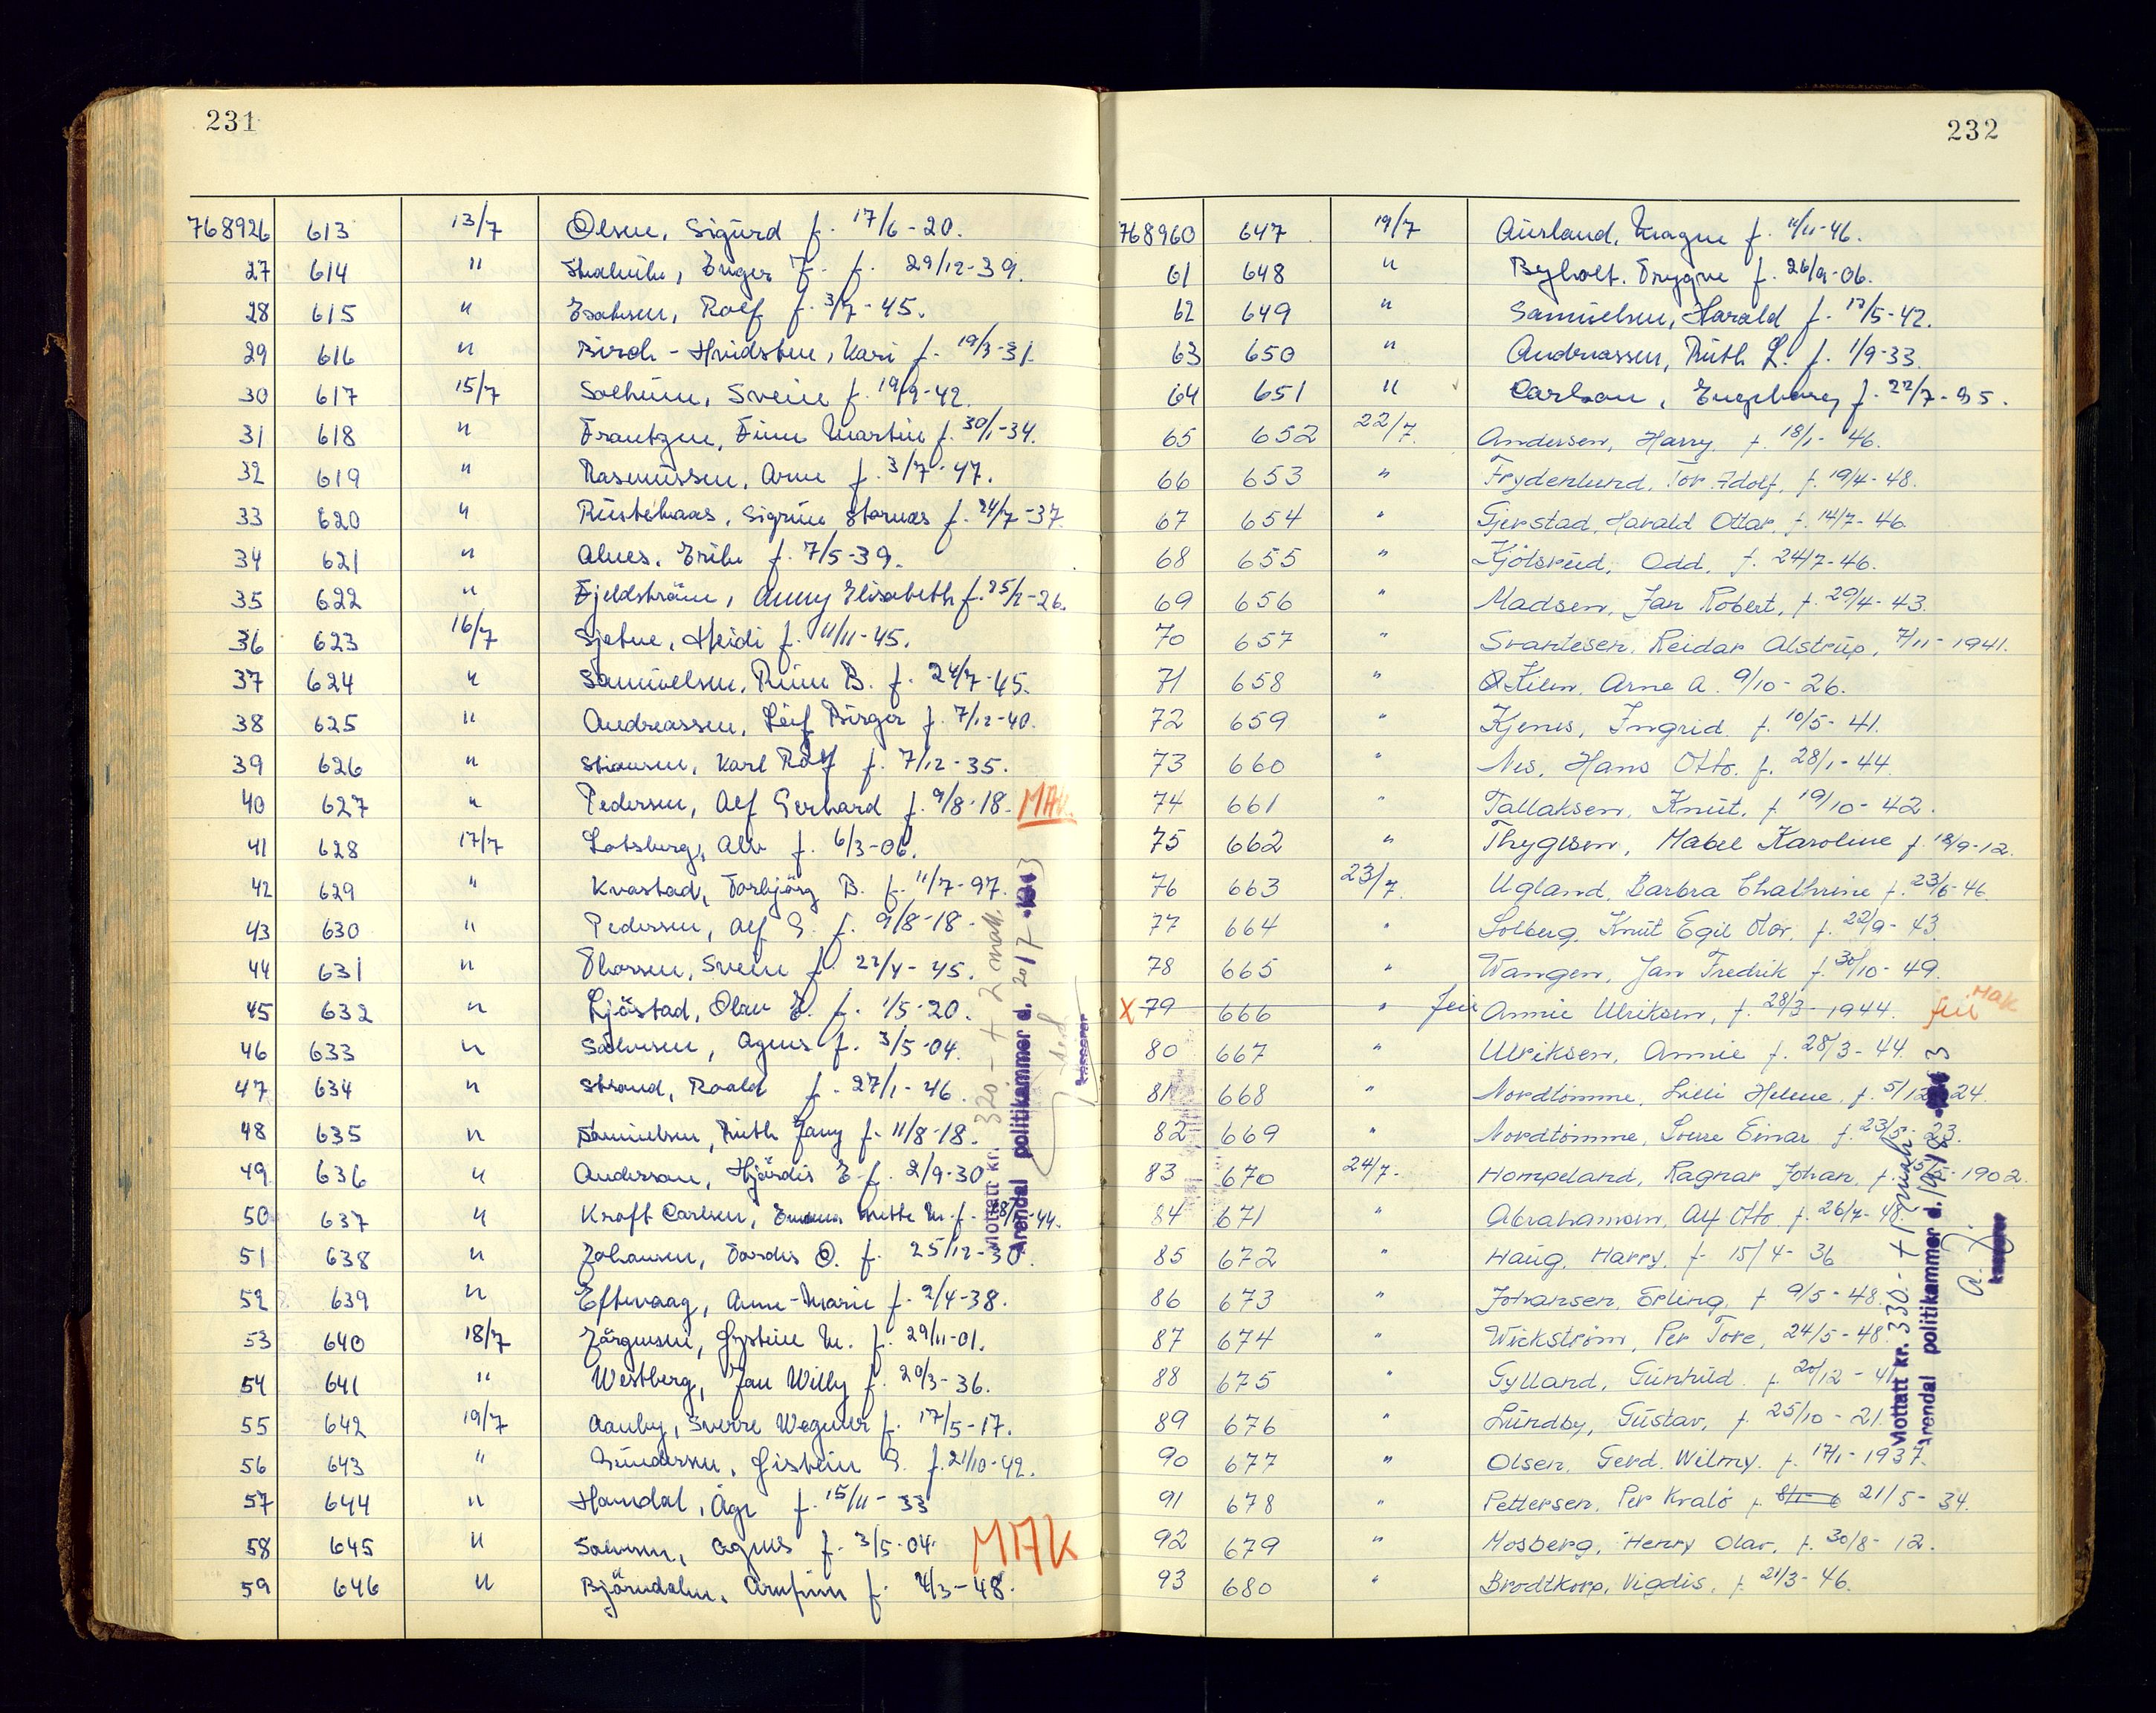 231
768926 613 13/7 Olsen, Sigurd f. 17/6-20.
27 614 " Inger f. 29/12-39.
28 615 " Rolf f. 3/7-45.
29 616 " Birch-Hvidsten, Kari f. 19/3-31
30 617 15/7 Solheim, Svein f. 19/9-42.
31 618 " Frantzen, Finn Martin f. 30/1-34.
32 619 " Rasmussen, Arne f. 3/7-47.
33 620 " Sigrun f. 24/7-37
34 621 " Alnes, f. 7/5-39.
35 622 " Anny Elisabeth f. 25/2-26.
36 623 16/7 Heidi f. 11/11-45.
37 624 " Samuelsen, B. f. 24/7-45.
38 625 " Andreassen, Leif Birger f. 7/12-40.
39 626 " Karl Rolf f. 7/12-35.
40 627 " Pedersen, Alf Gerhard f. 9/8-18. MAK.
41 628 17/7 Lotsberg, f. 6/3-06.
42 629 " Kvastad, Torbjörg B. f. 11/7-97.
43 630 " Pedersen, Alf G. f. 9/8-18.
44 631 " Thorsen, Svein f. 22/4-45.
45 632 " Olav E. f. 1/5-20.
46 633 " Salvesen, Agnes f. 3/5-04.
47 634 " Strand, Roald f. 27/1-46.
48 635 " Samuelsen, Ruth Jany f. 11/8-18.
49 636 " Anderson, Hjördis E. f. 2/9-30
50 637 " Kraft Carlsen, Mette M. f.
51 638 " Johansen, Tordis O. f. 25/12-30.
52 639 " Eftevaag, Anne-Marie f. 2/4-38.
53 640 18/7 Jörgensen, Gystein M. f. 29/11-01.
54 641 " Westberg, Jan Willy f. 20/3-36.
55 642 19/7 Aanby, Sverre Wegner f. 17/5-17.
56 643 " Gundersen, Gistein G. f. 21/10-42.
57 644 " Åge f. 15/11-33
58 645 " Salvesen, Agnes f. 3/5-04. MAK
59 646 " Björndalen, Arnfinn f. 4/3-48.
Mottatt kr. 320.- + 2 mak.
Arendal politikammer d. 20/7
Kasserer
232
768960 647 19/7 Aursland, Magne f. 11/11-46.
61 648 " Byholt. Trygve f. 26/9-06.
62 649 " Samuelsen, Harald f. 17/5-42.
63 650 " Andreassen, Ruth L. f. 1/9-33.
64 651 " Carlson, Engeborg f. 22/7-95.
65 652 22/7. Andersen, Harry. f. 18/1-46.
66 653 " Frydenlund, Tor Adolf, f. 19/4-48.
67 654 " Gjerstad, Harald Ottar, f. 14/7-46.
68 655 " Kjölsrud, Odd, f. 24/7-46.
69 656 " Madsen, Jan Robert, f. 29/4-43.
70 657 " Svantesen, Reidar Alstrup, 7/11-1941.
71 658 " Kilen, Arne A. 9/10-26.
72 659 " Kjenes, Ingrid. f. 10/5-41.
73 660 " Nes, Hans Otto. f. 28/1-44.
74 661 " Tallaksen, Knut. f. 19/10-42.
75 662 " Thygesen, Mabel Karoline f. 18/9-12.
76 663 23/7. Ugland, Barbra Chathrine f. 23/6-46
77 664 " Solberg, Knut Egil Olav. f. 22/9-43.
78 665 " Wangen, Jan Fredrik f. 30/10-49.
X 79 666 " feil Annie Ulriksen, f. 28/3-1944. feil MAK
80 667 " Ulriksen, Annie f. 28/3-44.
81 668 " Nordtömme, Lilli Helene. f. 5/12-24.
82 669 " Nordtömme, Einar f. 23/5-23.
83 670 24/7. Hompeland, Ragnar Johan, f. 1902.
84 671 " Abrahamsen, Alf Otto f. 26/7-48.
85 672 " Haug, Harry. f. 15/4-36
86 673 " Johansen, Erling. f. 9/5-48.
87 674 " Wickström, Per Tore, 24/5-48.
88 675 " Gylland, Gunhild. f. 20/12-41.
89 676 " Lundby, Gustav, f. 25/10-21.
90 677 " Olsen, Gerd. Wilmy. f. 17/1-1937.
91 678 " Pettersen, Per Kralö f. 21/5-34.
92 679 " Mosberg, Henry Olav, f. 30/8-12.
93 680 " Brodtkorp, Vigdis, f. 21/3-46.
Mottatt kr. 330.- + 1 mak.
Arendal politikammer d.
Kasserer